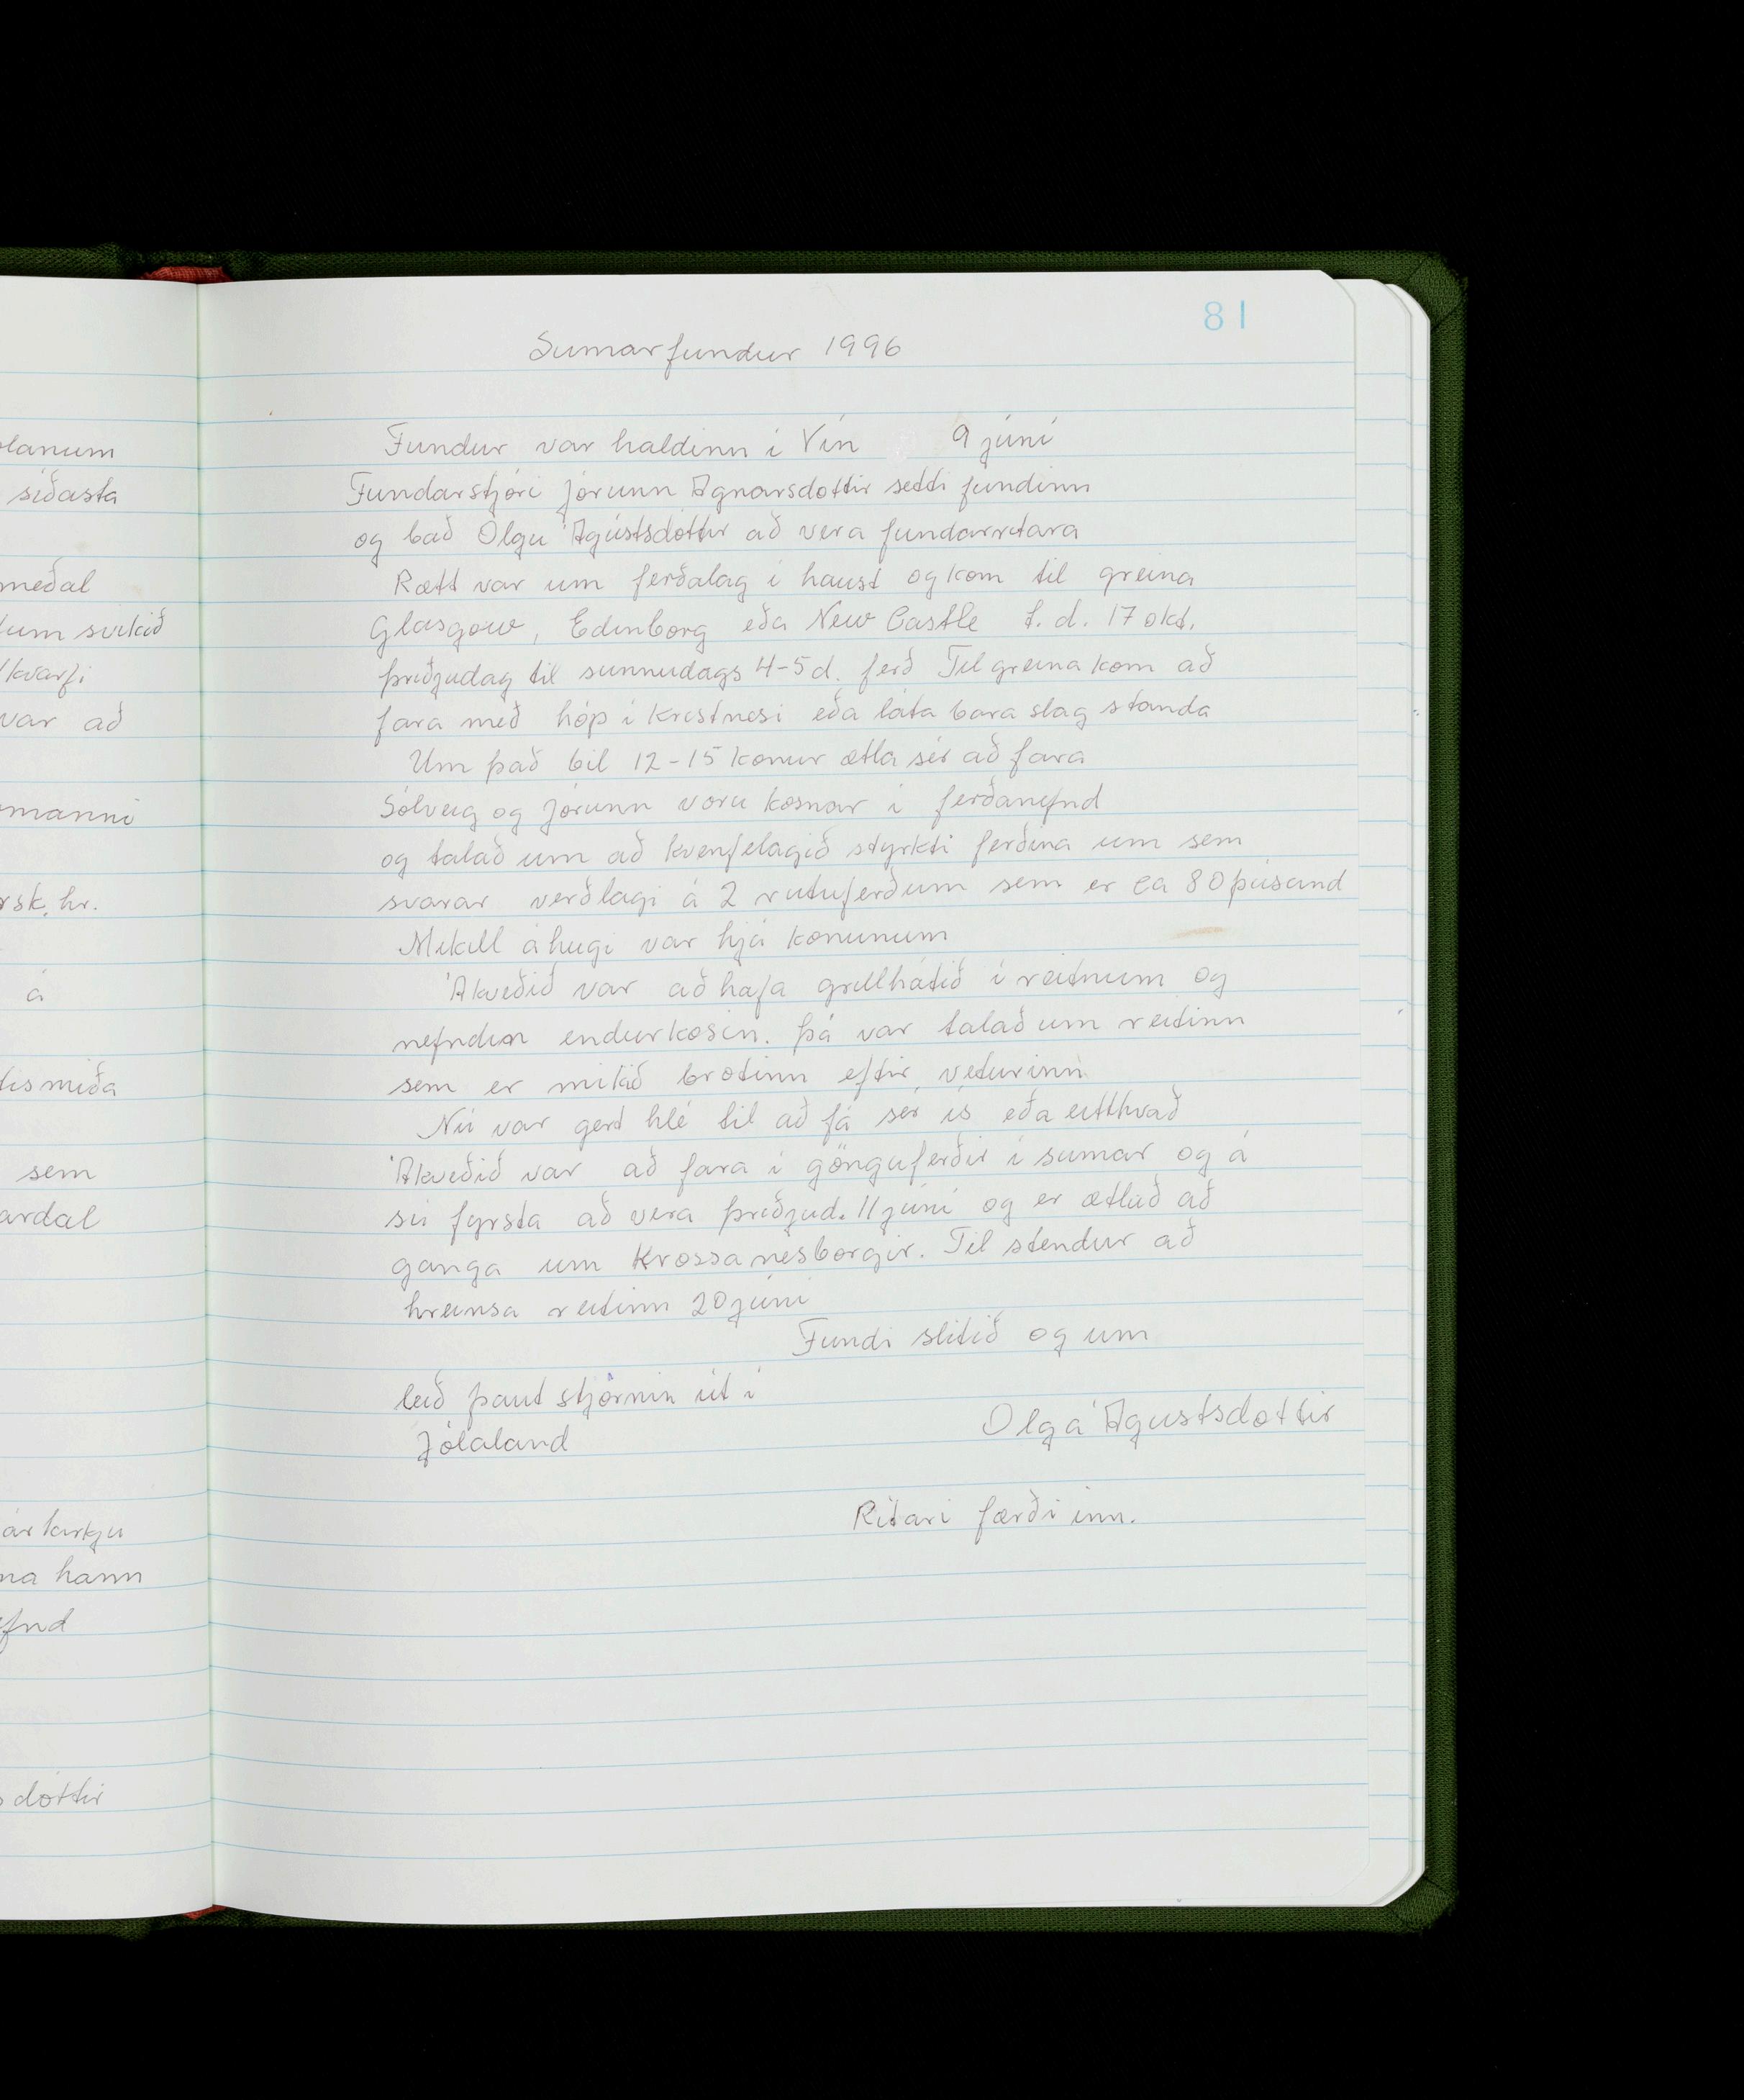 81
Sumarfundur 1996
Fundur var haldinn i Vín 9 júní
Fundarstjóri Jórunn Agnarsdottir setti fundinn
og bað Olgu Ágústsdóttir að vera fundarritara
Rætt var um ferðalag i haust og kom til greina
Glasgow, Edinborg eða New Castle t.d. 17 okt.
þriðjudag til sunnudags 4-5 d. ferð Til greina kom að
fara með hóp i Kristnesi eða láta bara slag standa
Um það bil 12-15 konur ætla sér að fara
Sólveig og Jórunn voru kosnar i ferðanefnd
og talað um að kvenfelagið styrkti ferðina um sem
svarar verðlagi á 2 rutuferðum sem er ca 80 þúsund
Mikill áhugi var hjá konunum
Ákveðið var að hafa grillhátið i reitnum og
nefndin endurkosin. Þá var talað um reitinn
sem er mikið brotinn eftir veturinn
Nú var gert hlé til að fá sér ís eða eitthvað
Ákveðið var að fara i gönguferðir i sumar og á
sú fyrsta að vera þriðjud. 11 júni og er ætlað að
ganga um Krossanesborgir. Til stendur að
hreinsa reitinn 20 júni
Fundi slitið og um
leið þaut stjórnin út i
Jólaland
Olga Águstsdottir
Ritari færði inn.
olanum
síðasta
meðal
svikið
kvarfi
var að
manni
rsk. hr.
á
tismiða
sem
ardal
ár kirkju
na hann
fnd
sdóttir